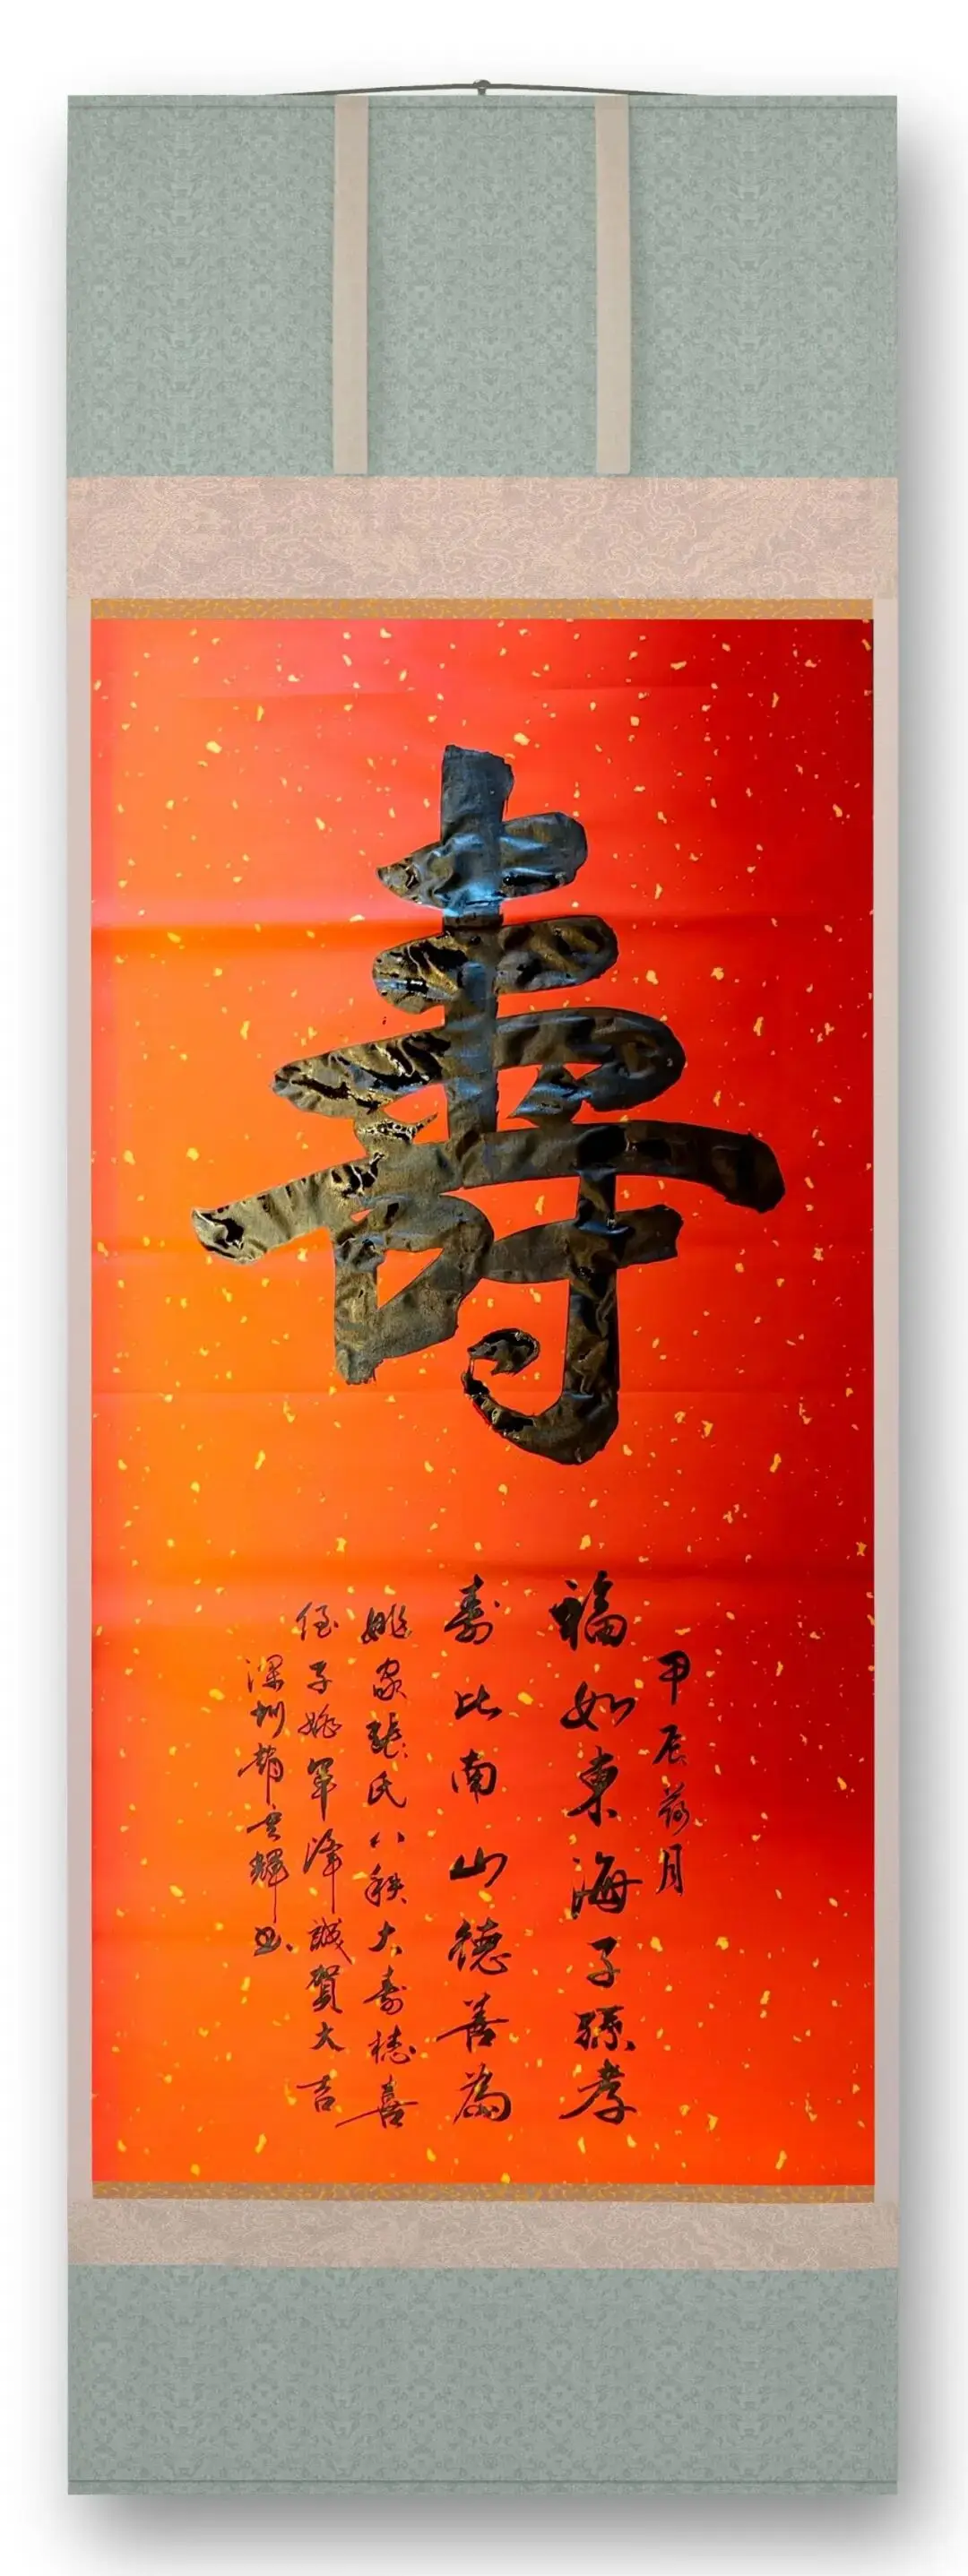 壽
甲辰荷月
福如東海子孫孝
壽比南山德善為
姚家張氏八秩大壽喜
侄子姚軍誠賀大吉
深圳趙云輝书